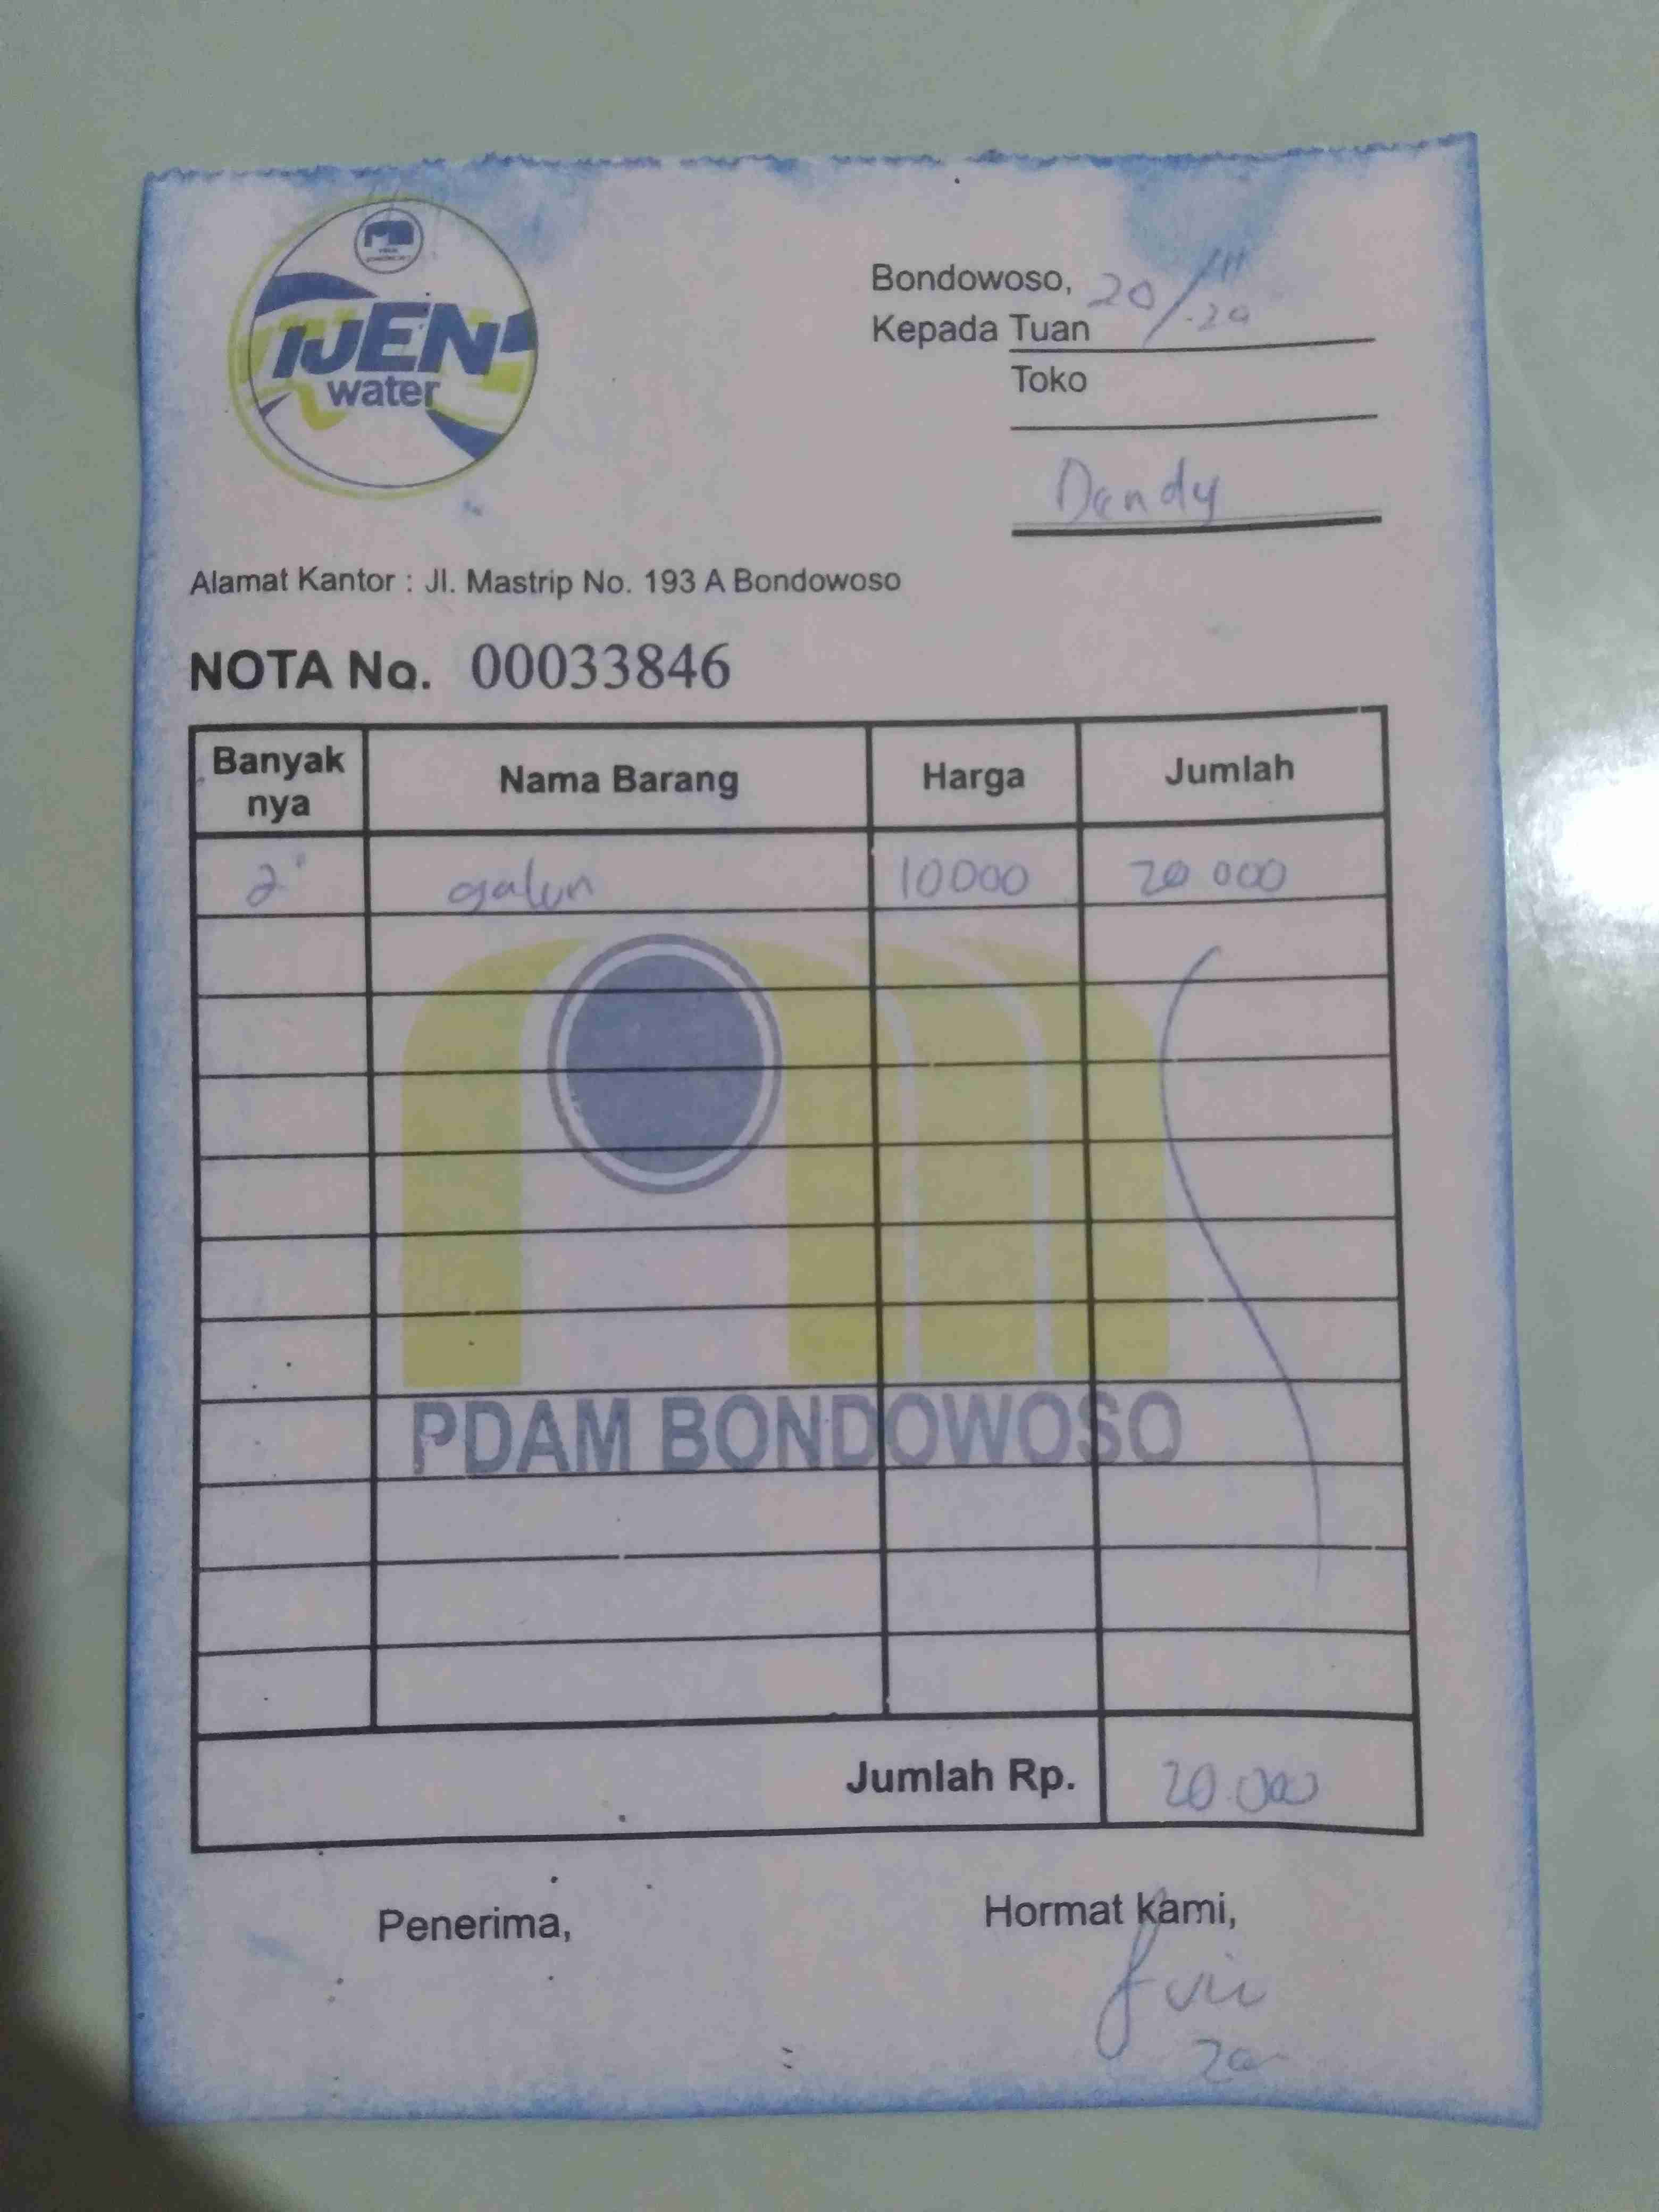 IJEN
water
Bondowoso, 20/111.20
Kepada Tuan
Toko
Dandy
Alamat Kantor : Jl. Mastrip No. 193 A Bondowoso
NOTA No. 00033846
Banyak nya Nama Barang Harga Jumlah
2 galon 10000 20 000
PDAM BONDOWOSO
Jumlah Rp. 20.000
Penerima, Hormat kami,